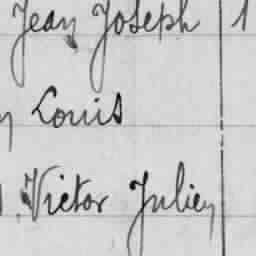 Jean Joseph 1
Louis
Victor Julien